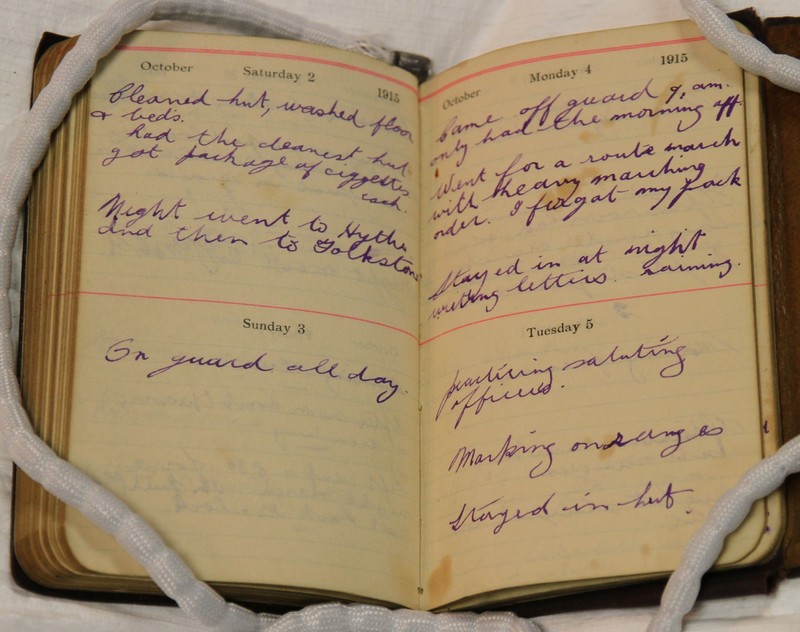 October Saturday 2 1915
Cleaned hut, washed floor
& beds.
had the cleanest hut
got package of ciggettes
each.
Night went to Hythe
and then to Folkstone
Sunday 3
On guard all day.
October Monday 4 1915
Came off guard 9, am.
only had the morning off
Went for a route march
with heavy marching
order. I forgot my pack
Stayed in at night
writing letters. raining.
Tuesday 5
practising saluting
officers.
Marking on ranges
Stayed in hut.